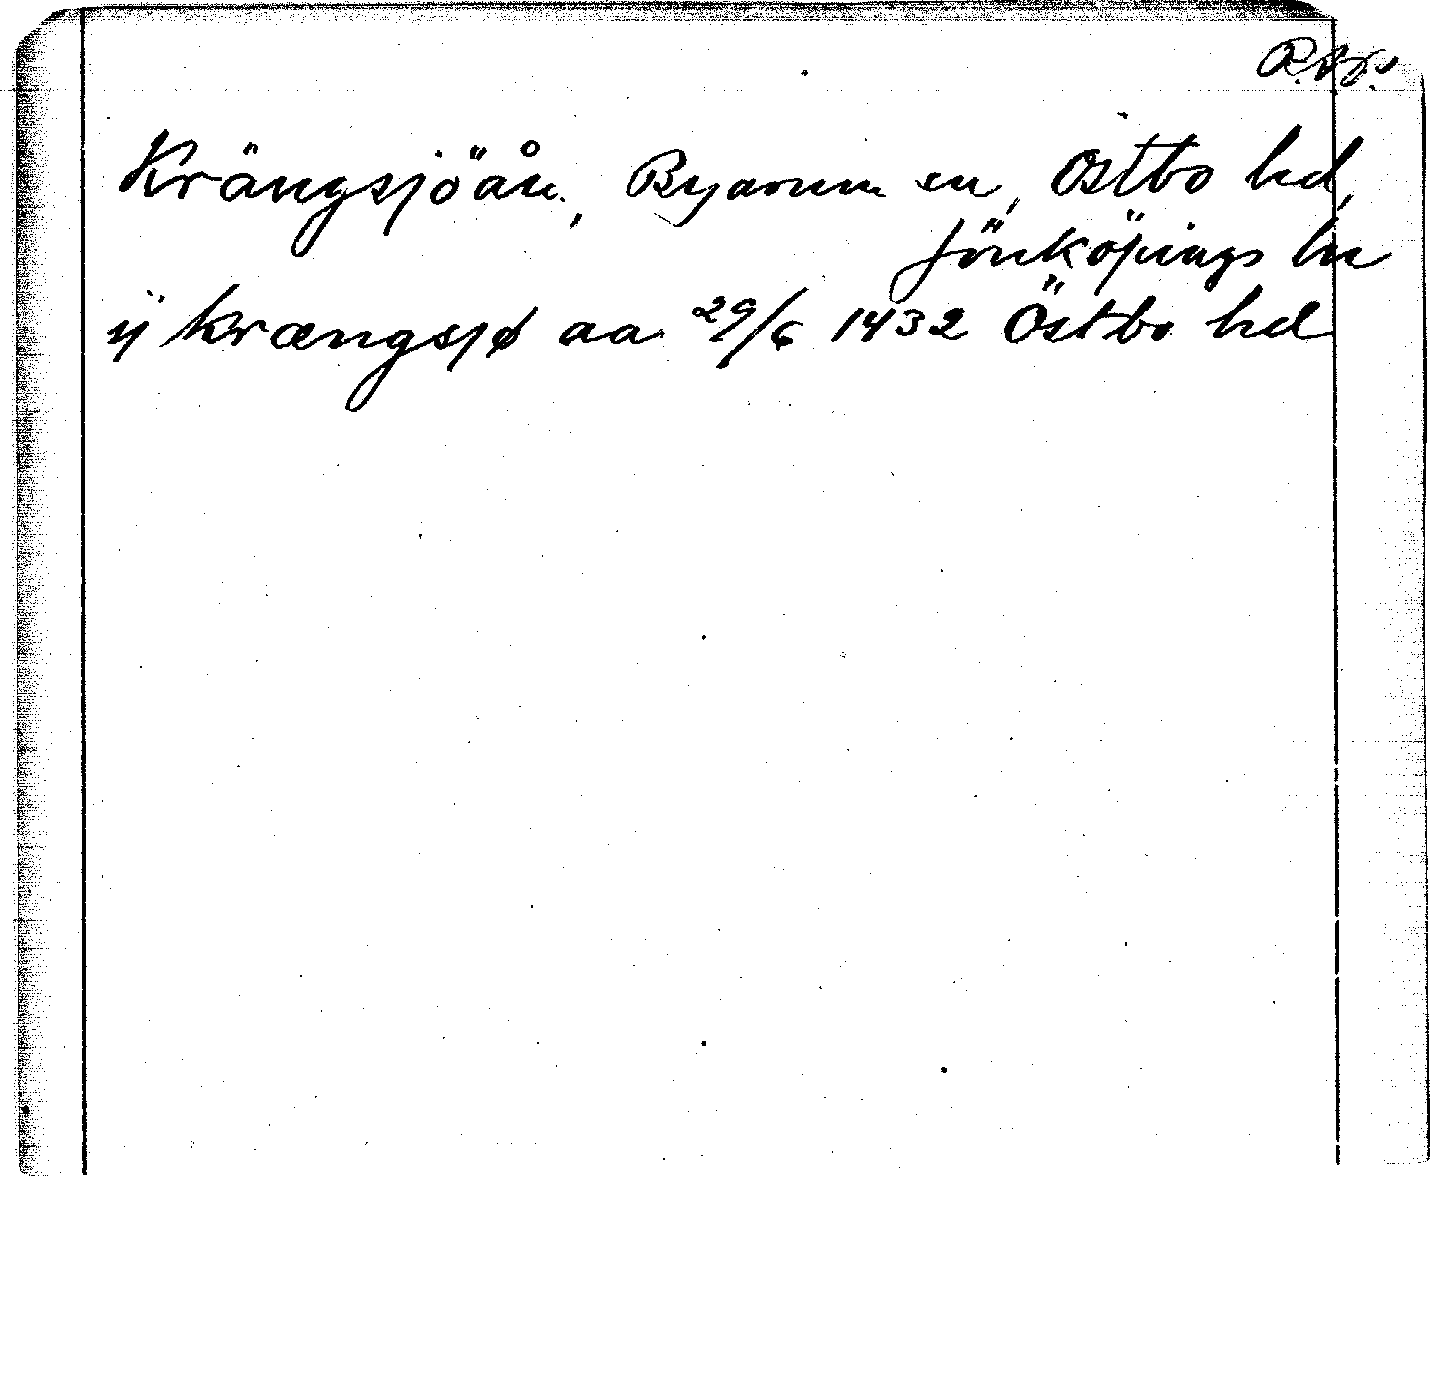 Krängsjöån, Byarum sn, Östbo hd,
Jönköpings ln
ij krængsjø aa 29/6 1432 Östbo hd